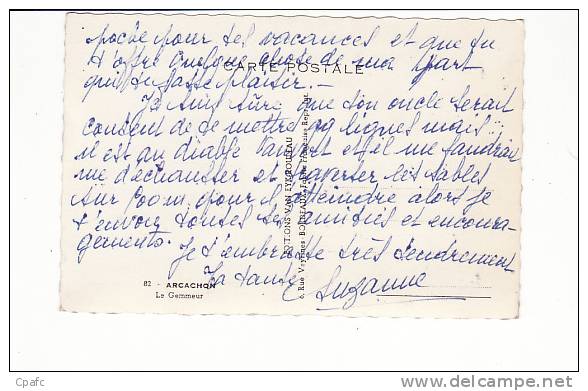 poche pour tes vacances et que tu
t'offre quelque chose de ma part
CARTE POSTALE
qui te fasse plaisir. -
Je suis sûre que ton oncle serait
content de te mettre 99 lignes mais
il est au diable Vauvert et il me faudrait
me déchausser et traverser les sables
sur 800m. pour l'atteindre alors je
t'envoie toutes ses amitiés et encoura-
gements.
Je t'embrasse très tendrement
Ta tante Suzanne
82 - ARCACHON
Le Gemmeur
EDITIONS VAN EYK-ROULEAU
6, Rue Veyrines - BORDEAUX
Cpafc
http://www.delcampe.net